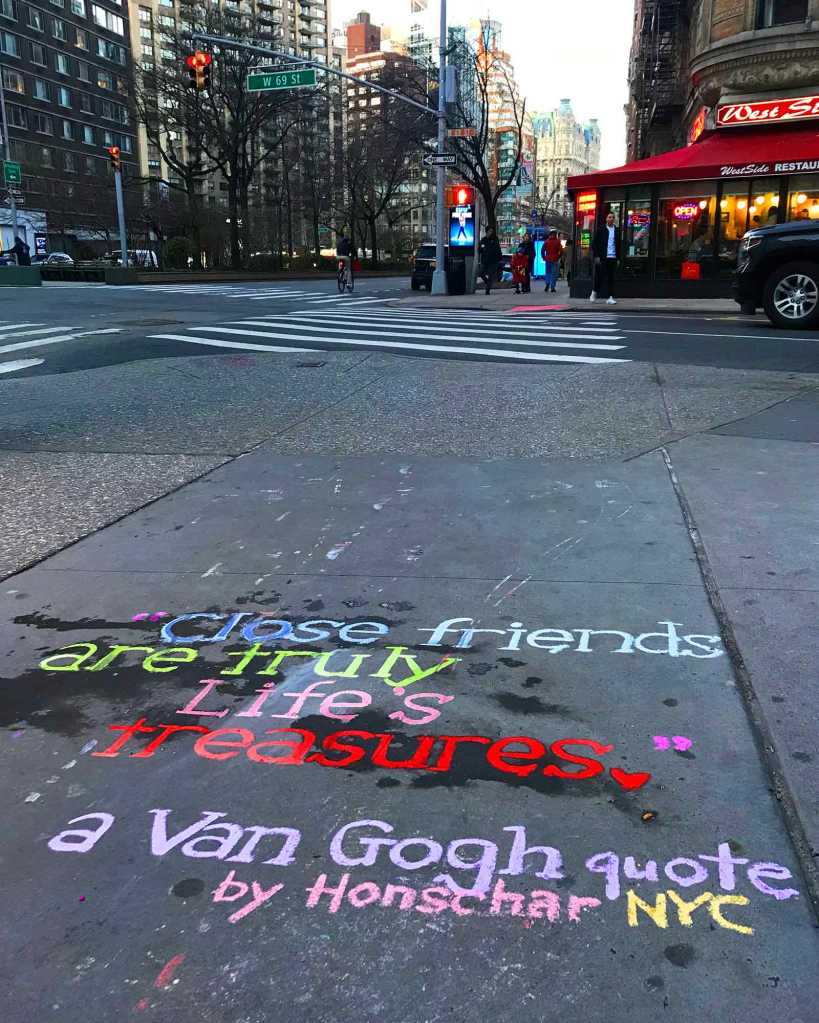 W 69 St
ONE WAY
West Si
WestSide RESTAU
OPEN
"Close friends
are truly
Life's
treasures."
a Van Gogh quote
by Honschar NYC